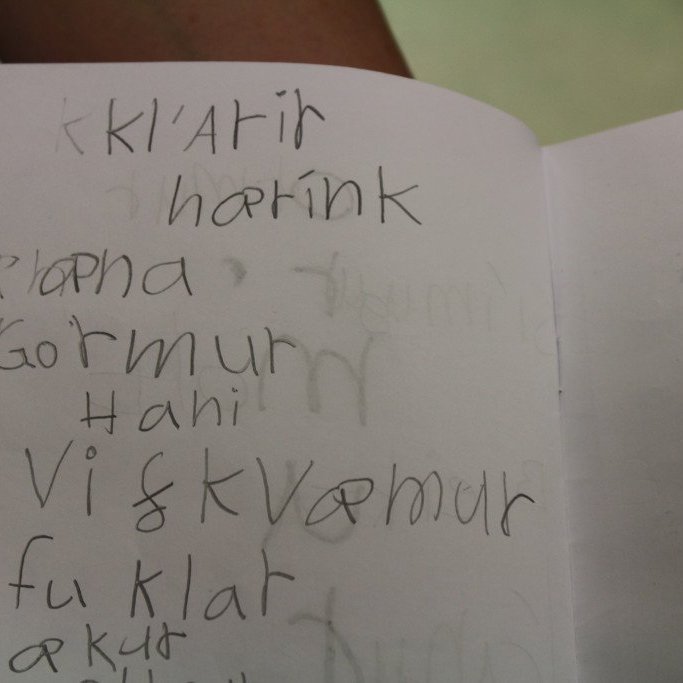 k kl'Arir
hærínk
Gormur
Hani
Við kvæmur
fuklar
ækur